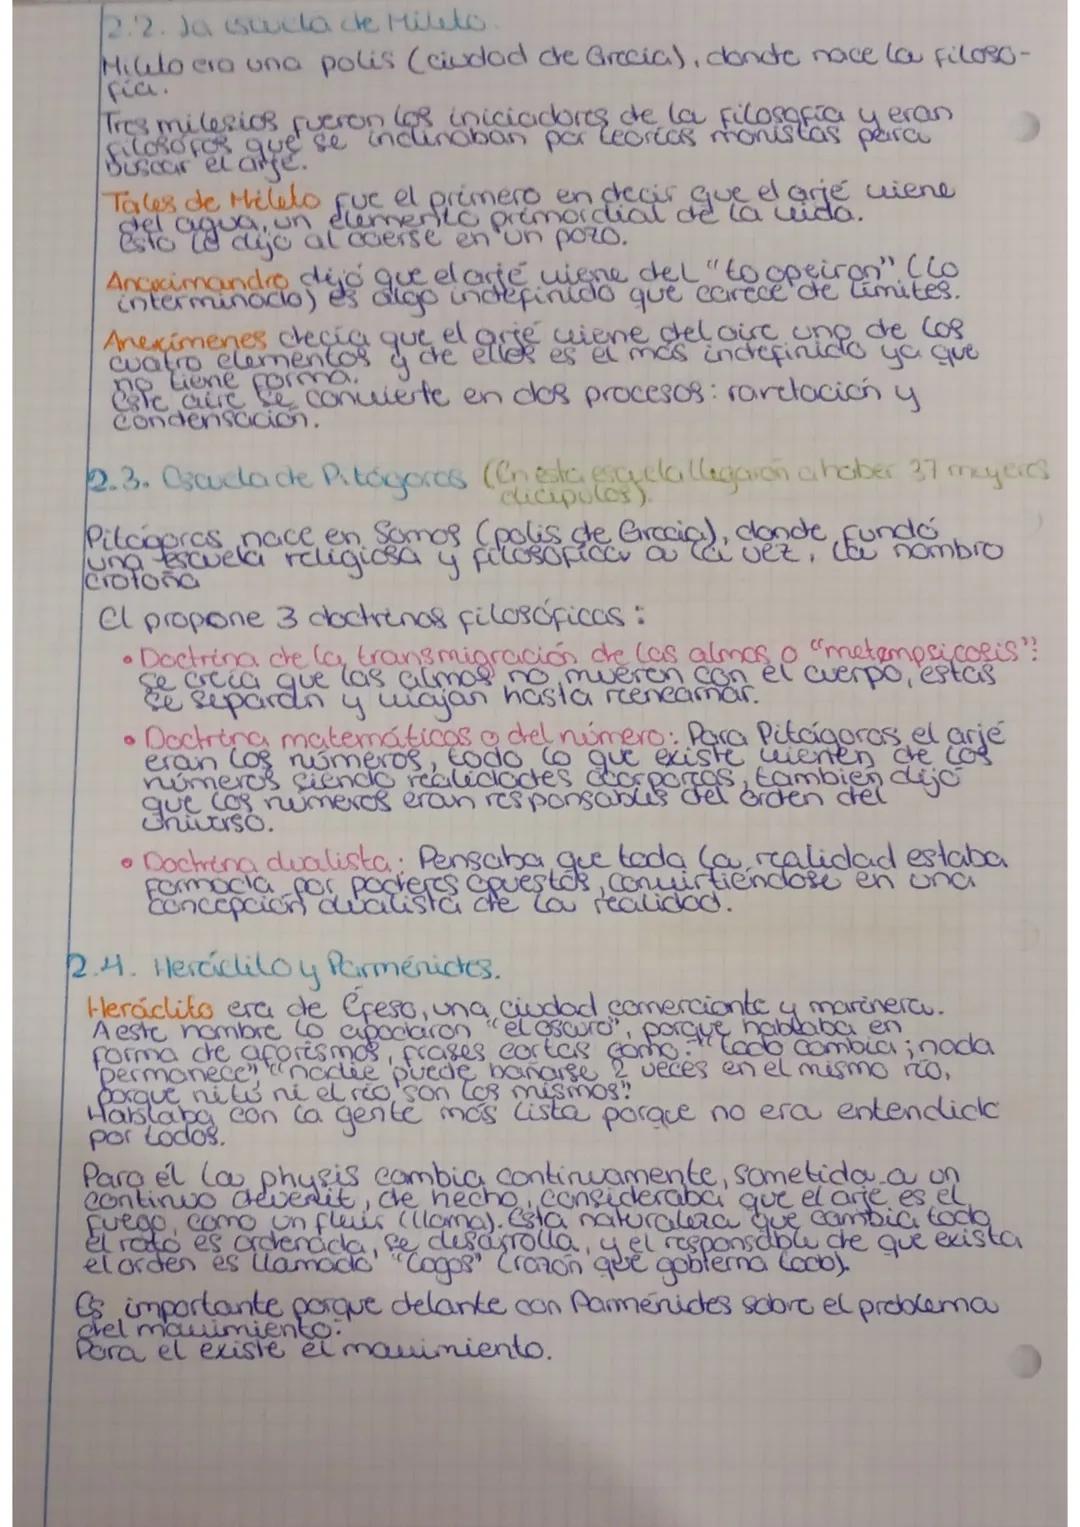 2.2. La escuela de Mileto.
Mileto era una polis (ciudad de Grecia), donde nace la filoso-
fía.
Tres milesios fueron los iniciadores de la filosofía y eran
filósofos que se inclinaban por teorías monistas para
buscar el arjé.
Tales de Mileto fue el primero en decir que el arjé viene
del agua, un elemento primordial de la vida.
Esto lo dijo al caerse en un pozo.
Anaximandro dijo que el arjé viene del "to apeiron" (lo
interminado) es algo indefinido que carece de límites.
Anexímenes decía que el arjé viene del aire uno de los
cuatro elementos y de ellos es el más indefinido ya que
no tiene forma.
Este aire se convierte en dos procesos: rarefacción y
condensación.
2.3. Escuela de Pitágoras (En esta escuela llegaron a haber 37 mujeres
dicípulos).
Pitágoras nace en Samos (polis de Grecia), donde fundó
una escuela religiosa y filosófica a la vez, la nombro
crotona
El propone 3 doctrinas filosóficas:
• Doctrina de la transmigración de las almas o "metempsicosis":
se creía que las almas no mueren con el cuerpo, estas
se separan y viajan hasta reencarnar.
• Doctrina matemáticas o del número: Para Pitágoras el arjé
eran los números, todo lo que existe vienen de los
números siendo realidades, tambien dijo
que los números eran responsables del orden del
universo.
• Doctrina dualista: Pensaba que toda la realidad estaba
formada por poderes opuestos, convirtiéndose en una
concepción dualista de la realidad.
2.4. Heráclito y Parménides.
Heráclito era de Éfeso, una ciudad comerciante y marinera.
A este hombre lo apodaron "el oscuro", porque hablaba en
forma de aforismos, frases cortas como: "todo cambia; nada
permanece" "nadie puede bañarse 2 veces en el mismo río,
porque ni tú ni el río son los mismos".
Hablaba con la gente más lista porque no era entendido
por todos.
Para él la physis cambia continuamente, sometida a un
continuo devenir, de hecho, consideraba que el arjé es el
fuego, como un (llama). Esta naturaleza que cambia todo
el rato es ordenada, se desarrolla, y el responsable de que exista
el orden es llamado "Logos" (razón que gobierna todo).
Es importante porque delante con Parménides sobre el problema
del movimiento:
Para el existe el movimiento.